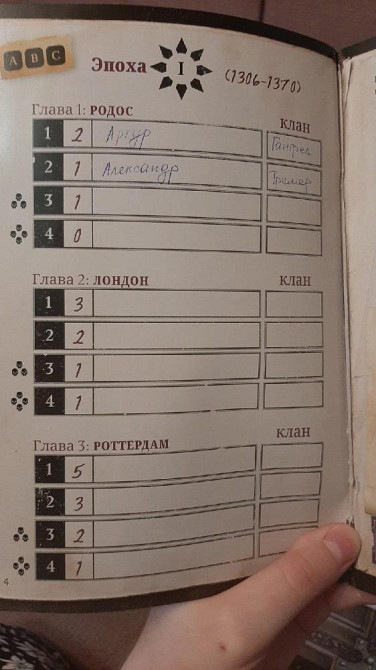 A B C
Эпоха I (1306-1370)
Глава 1: РОДОС клан
1 2 Артур Гангрел
2 1 Александр Тремер
3 1
4 0
Глава 2: ЛОНДОН клан
1 3
2 2
3 1
4 1
Глава 3: РОТТЕРДАМ клан
1 5
2 3
3 2
4 1
4